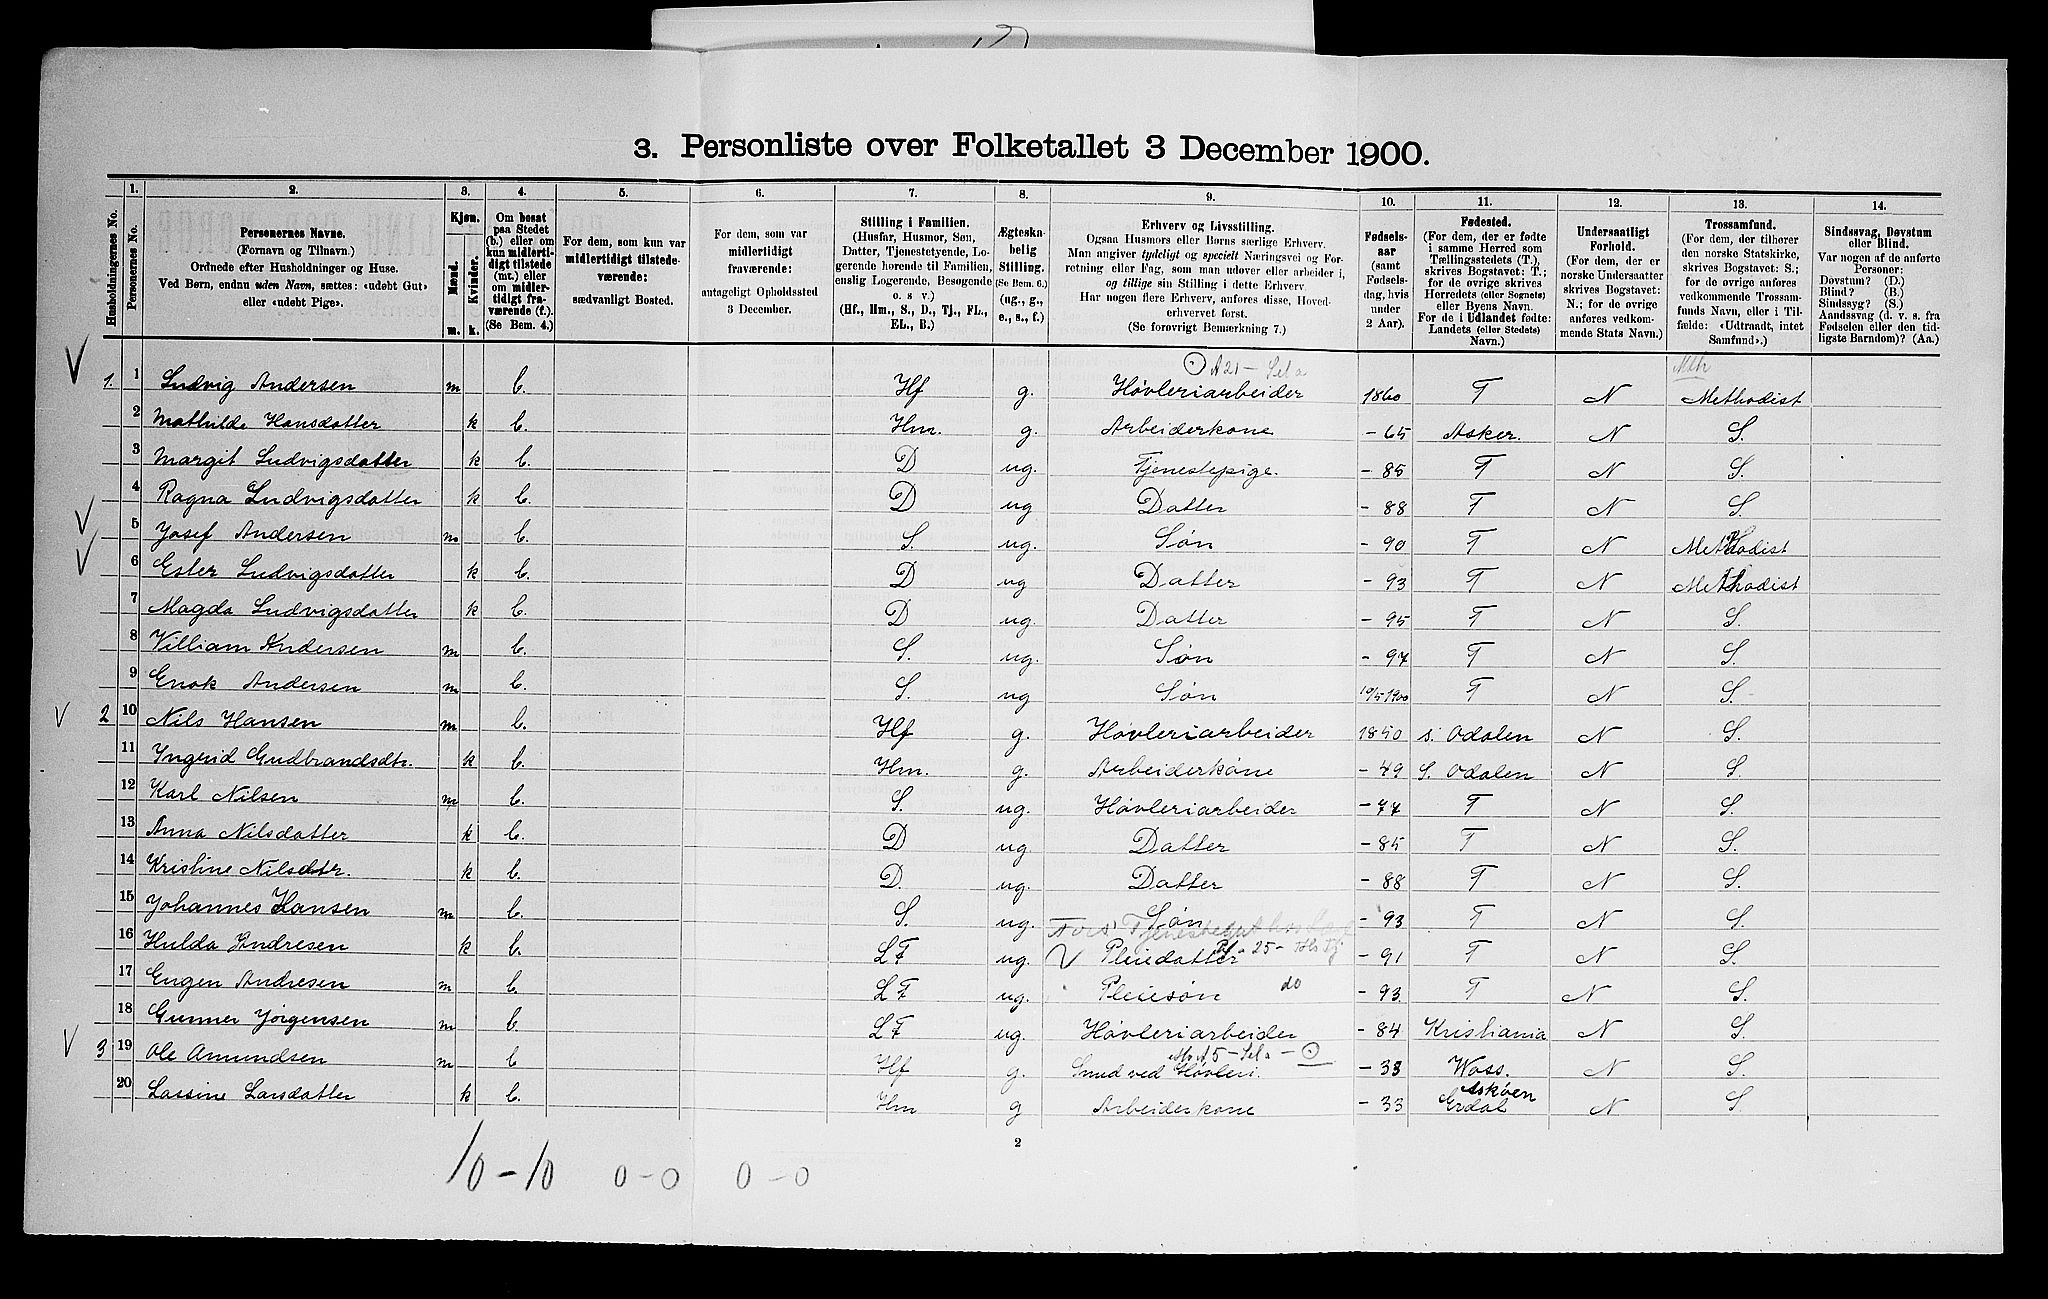 3. Personliste over Folketallet 3 December 1900.
Husholdningernes No.
1. Personernes No.
2. Personernes Navne. (Fornavn og Tilnavn.) Ordnede efter Husholdninger og Huse. Ved Børn, endnu uden Navn, sættes: «udøbt Gut» eller «udøbt Pige».
3. Kjøn. Mænd. m. Kvinder. k.
4. Om bosat paa Stedet (b.) eller om kun midlertidigt tilstede (mt.) eller om midlertidigt fraværende (f.) (Se Bem. 4.)
5. For dem, som kun var midlertidigt tilstedeværende: sædvanligt Bosted.
6. For dem, som var midlertidigt fraværende: antageligt Opholdssted 3 December.
7. Stilling i Familien. (Husfar, Husmor, Søn, Datter, Tjenestetyende, Logerende hørende til Familien, enslig Logerende, Besøgende o. s v.) (Hf., Hm., S., D., Tj., FL., EL., B.)
8. Ægteskabelig Stilling. (Se Bem. 6.) (ug., g., e., s., f.)
9. Erhverv og Livsstilling. Ogsaa Husmors eller Børns særlige Erhverv. Man angiver tydeligt og specielt Næringsvei og Forretning eller Fag, som man udøver eller arbeider i, og tillige sin Stilling i dette Erhverv. Har nogen flere Erhverv, anføres disse, Hovederhvervet først. (Se forøvrigt Bemærkning 7.)
10. Fødselsaar (samt Fødselsdag, hvis under 2 Aar).
11. Fødested. (For dem, der er fødte i samme Herred som Tællingsstedets (T.), skrives Bogstavet: T.; for de øvrige skrives Herredets (eller Sognets) eller Byens Navn. For de i Udlandet fødte: Landets (eller Stedets) Navn.)
12. Undersaatligt Forhold. (For dem, der er norske Undersaatter skrives Bogstavet: N.; for de øvrige anføres vedkommende Stats Navn.)
13. Trossamfund. (For dem, der tilhører den norske Statskirke, skrives Bogstavet: S.; for de øvrige anføres vedkommende Trossamfunds Navn, eller i Tilfælde: «Udtraadt, intet Samfund».)
14. Sindssvag, Døvstum eller Blind. Var nogen af de anførte Personer: Døvstum? (D.) Blind? (B.) Sindssyg? (S.) Aandssvag (d. v. s. fra Fødselen eller den tidligste Barndom)? (Aa.)
A21 - Sela Meth
1. 1 Ludvig Andersen m b. Hf g. Høvleriarbeider 1860 T N Methodist
2 Mathilde Hansdatter k b. Hm. g. Arbeiderkone - 65 Asker. N S.
3 Margit Ludvigsdatter k b. D ug. Tjenestepige. - 85 T N S.
4 Ragna Ludvigsdatter k b. D ug Datter - 88 T N S.
5 Josef Andersen m b. S. ug. Søn - 90 T N Methodist
6 Ester Ludvigsdatter k b. D ug Datter - 93 T N Methodist
7 Magda Ludvigsdatter k b. D ug. Datter - 95 T N S.
8 Villiam Andersen m b. S. ug. Søn - 97 T N S.
9 Enok Andersen m b. S. ug Søn 19/5 1900 T N S.
2 10 Nils Hansen m b. Hf g. Høvleriarbeider 1850 s. Odalen N S.
11 Yngrid Gudbrandsdtr. k b. Hm. g. Arbeiderkone - 49 S. Odalen N S.
12 Karl Nilsen m b. S. ug. Høvleriarbeider - 77 T N S.
13 Anna Nilsdatter k b. D ug Datter - 85 T N S.
14 Kristine Nilsdtr. k b. D. ug. Datter - 88 T N S.
15 Johannes Hansen m b. S. ug. Søn - 93 T N S.
16 Hulda Andresen k b. LF ug. Pleiedatter - 91 T N S.
17 Eugen Andresen m b. LF ug. Pleiesøn do - 93 T N S.
18 Gunner Jørgensen m b. LF ug. Høvleriarbeider - 84 Kristiania N S.
A5 - Sela -
3 19 Ole Amundsen m b Hf g. Smed ved Høvleri. - 33 Woss. N S.
20 Lassine Larsdatter k b. Hm g Arbeiderkone - 33 Askøen Erdal N S.
2
10 - 10 0 - 0 0 - 0